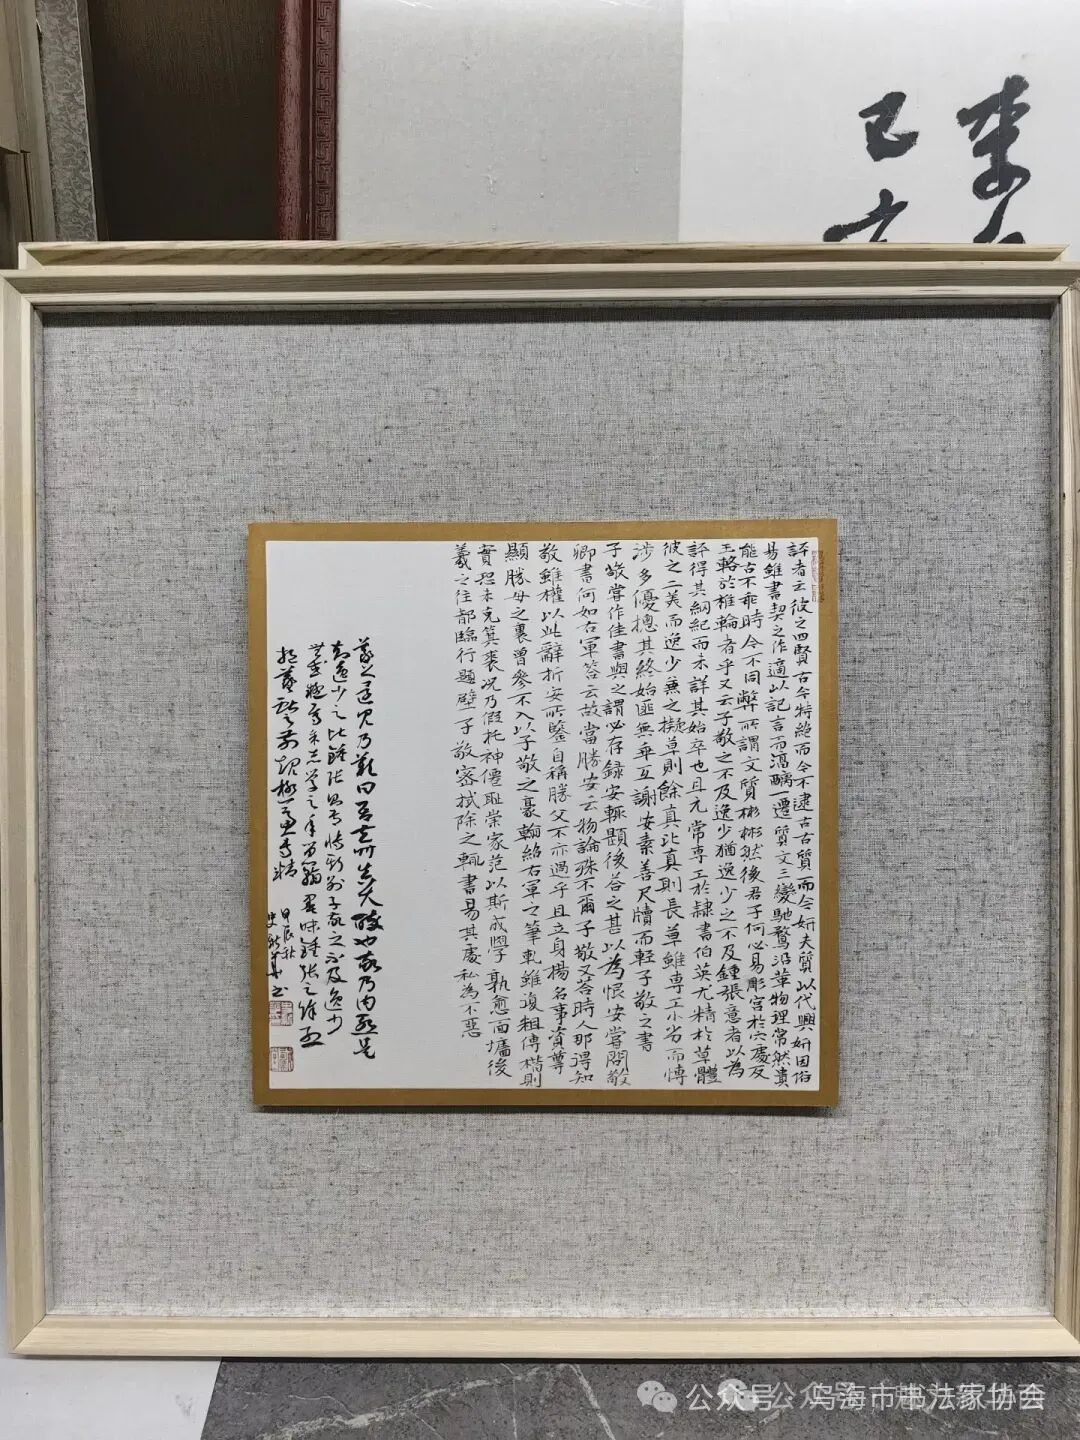 評者云彼之四賢古今特絶而今不逮古古質而今妍夫質以代興妍因俗
易雖書契之作適以記言而淳醨一遷質文三變馳騖沿革物理常然貴
能古不乖時今不同弊所謂文質彬彬然後君子何必易彫宮於穴處反
玉輅於椎輪者乎又云子敬之不及逸少猶逸少之不及鍾張意者以為
評得其綱紀而未詳其始卒也且元常專工於隸書伯英尤精於草體
彼之二美而逸少兼之擬草則餘真比真則長草雖專工小劣而博
涉多優摠其終始匪無乖互謝安素善尺牘而輕子敬之書
子敬嘗作佳書與之謂必存録安輒題後答之甚以為恨安嘗問敬
卿書何如右軍答云故當勝安云物論殊不爾子敬又答時人那得知
敬雖權以此辭折安所鑒自稱勝父不亦過乎且立身揚名事資尊
顯勝母之裏曾參不入以子敬之豪翰紹右軍之筆札雖復粗傳楷則
實恐未克箕裘況乃假托神僊恥崇家范以斯成學孰愈面墻後
羲之往都臨行題壁子敬密拭除之輒書易其處私為不惡
羲之還見乃歎曰吾去時真大醉也敬乃内慙是
知逸少之比鍾張則專博斯別子敬之不及逸少
無或疑焉余志學之年留心翰墨味鍾張之餘烈
挹羲獻之前規極慮專精
甲辰秋
李
已
公众号·乌海市书法家协会